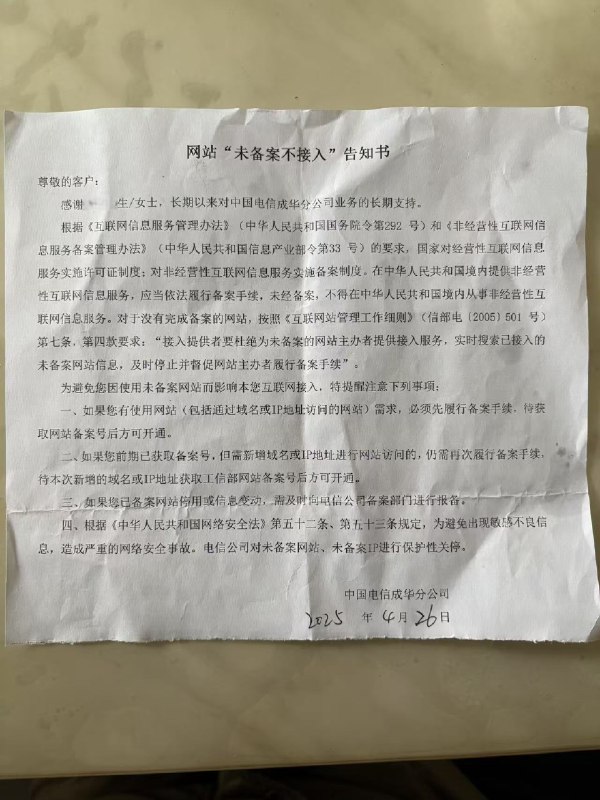 网站“未备案不接入”告知书
尊敬的客户：
感谢 生/女士，长期以来对中国电信成华分公司业务的长期支持。
根据《互联网信息服务管理办法》（中华人民共和国国务院令第292 号）和《非经营性互联网信
息服务备案管理办法》（中华人民共和国信息产业部令第33 号）的要求，国家对经营性互联网信息
服务实施许可证制度；对非经营性互联网信息服务实施备案制度。在中华人民共和国境内提供非经营
性互联网信息服务，应当依法履行备案手续，未经备案，不得在中华人民共和国境内从事非经营性互
联网信息服务。对于没有完成备案的网站，按照《互联网站管理工作细则》（信部电〔2005〕501 号）
第七条，第四款要求：“接入提供者要杜绝为未备案的网站主办者提供接入服务，实时搜索已接入的
未备案网站信息，及时停止并督促网站主办者履行备案手续”。
为避免您因使用未备案网站而影响本您互联网接入，特提醒注意下列事项：
一、如果您有使用网站（包括通过域名或IP地址访问的网站）需求，必须先履行备案手续，待获
取网站备案号后方可开通。
二、如果您前期已获取备案号，但需新增域名或IP地址进行网站访问的，仍需再次履行备案手续，
待本次新增的域名或IP地址获取工信部网站备案号后方可开通。
三、如果您已备案网站停用或信息变动，需及时向电信公司备案部门进行报备。
四、根据《中华人民共和国网络安全法》第五十二条、第五十三条规定，为避免出现敏感不良信
息，造成严重的网络安全事故。电信公司对未备案网站、未备案IP进行保护性关停。
中国电信成华分公司
2025 年 4 月 26 日